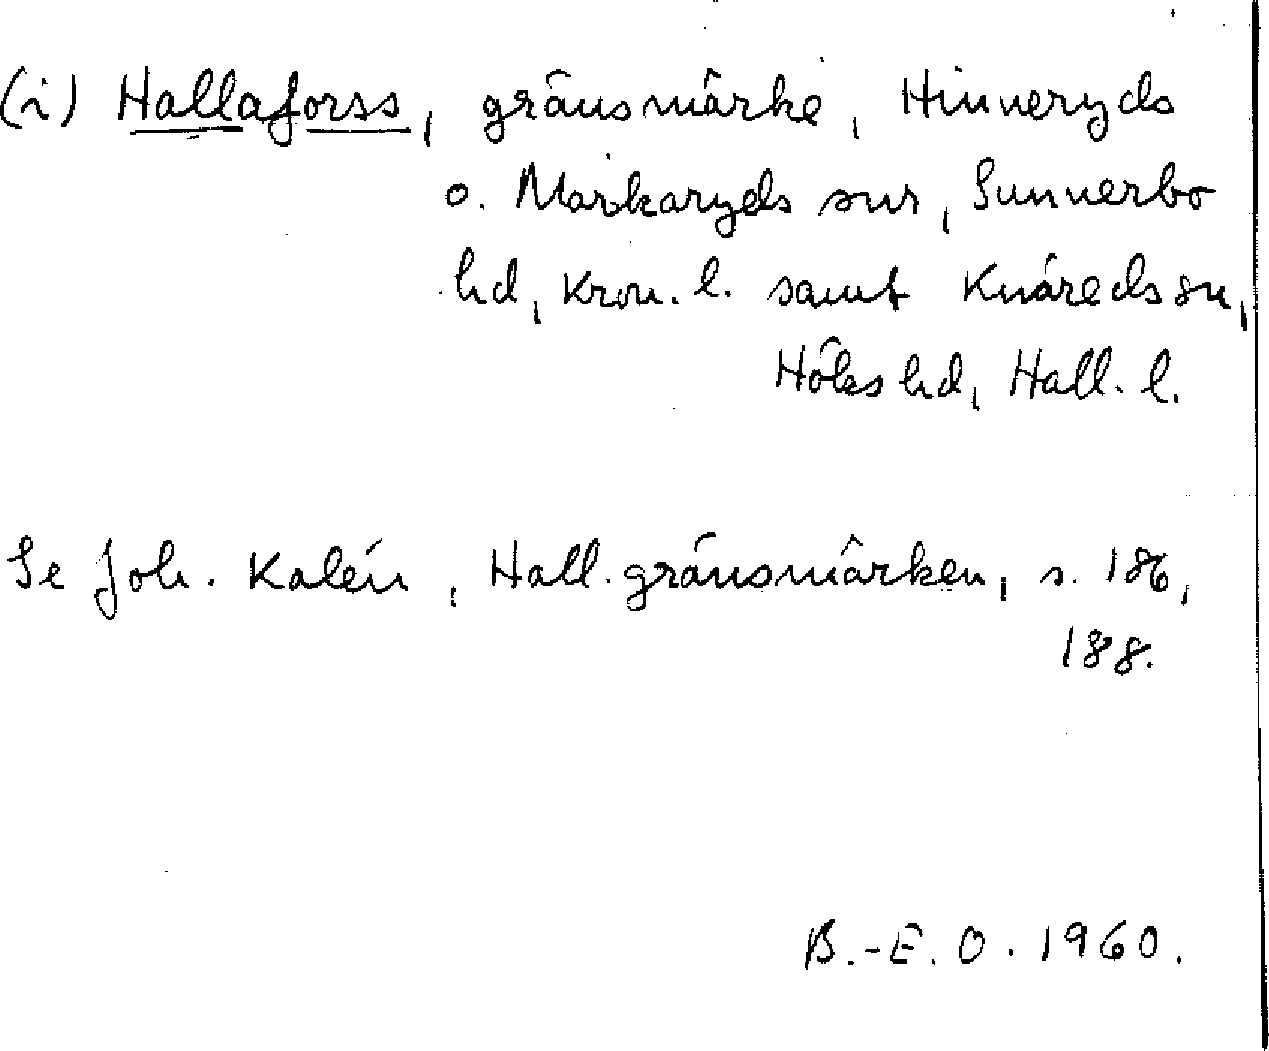 (i) Hallaforss, gränsmärke, Hinneryds
o. Markaryds snr, Sunnerbo
hd, Kron. l. samt Knäreds sn,
Höks hd, Hall. l.
Se Joh. Kalén, Hall. gränsmärken, s. 186,
188.
B.-E. O. 1960.